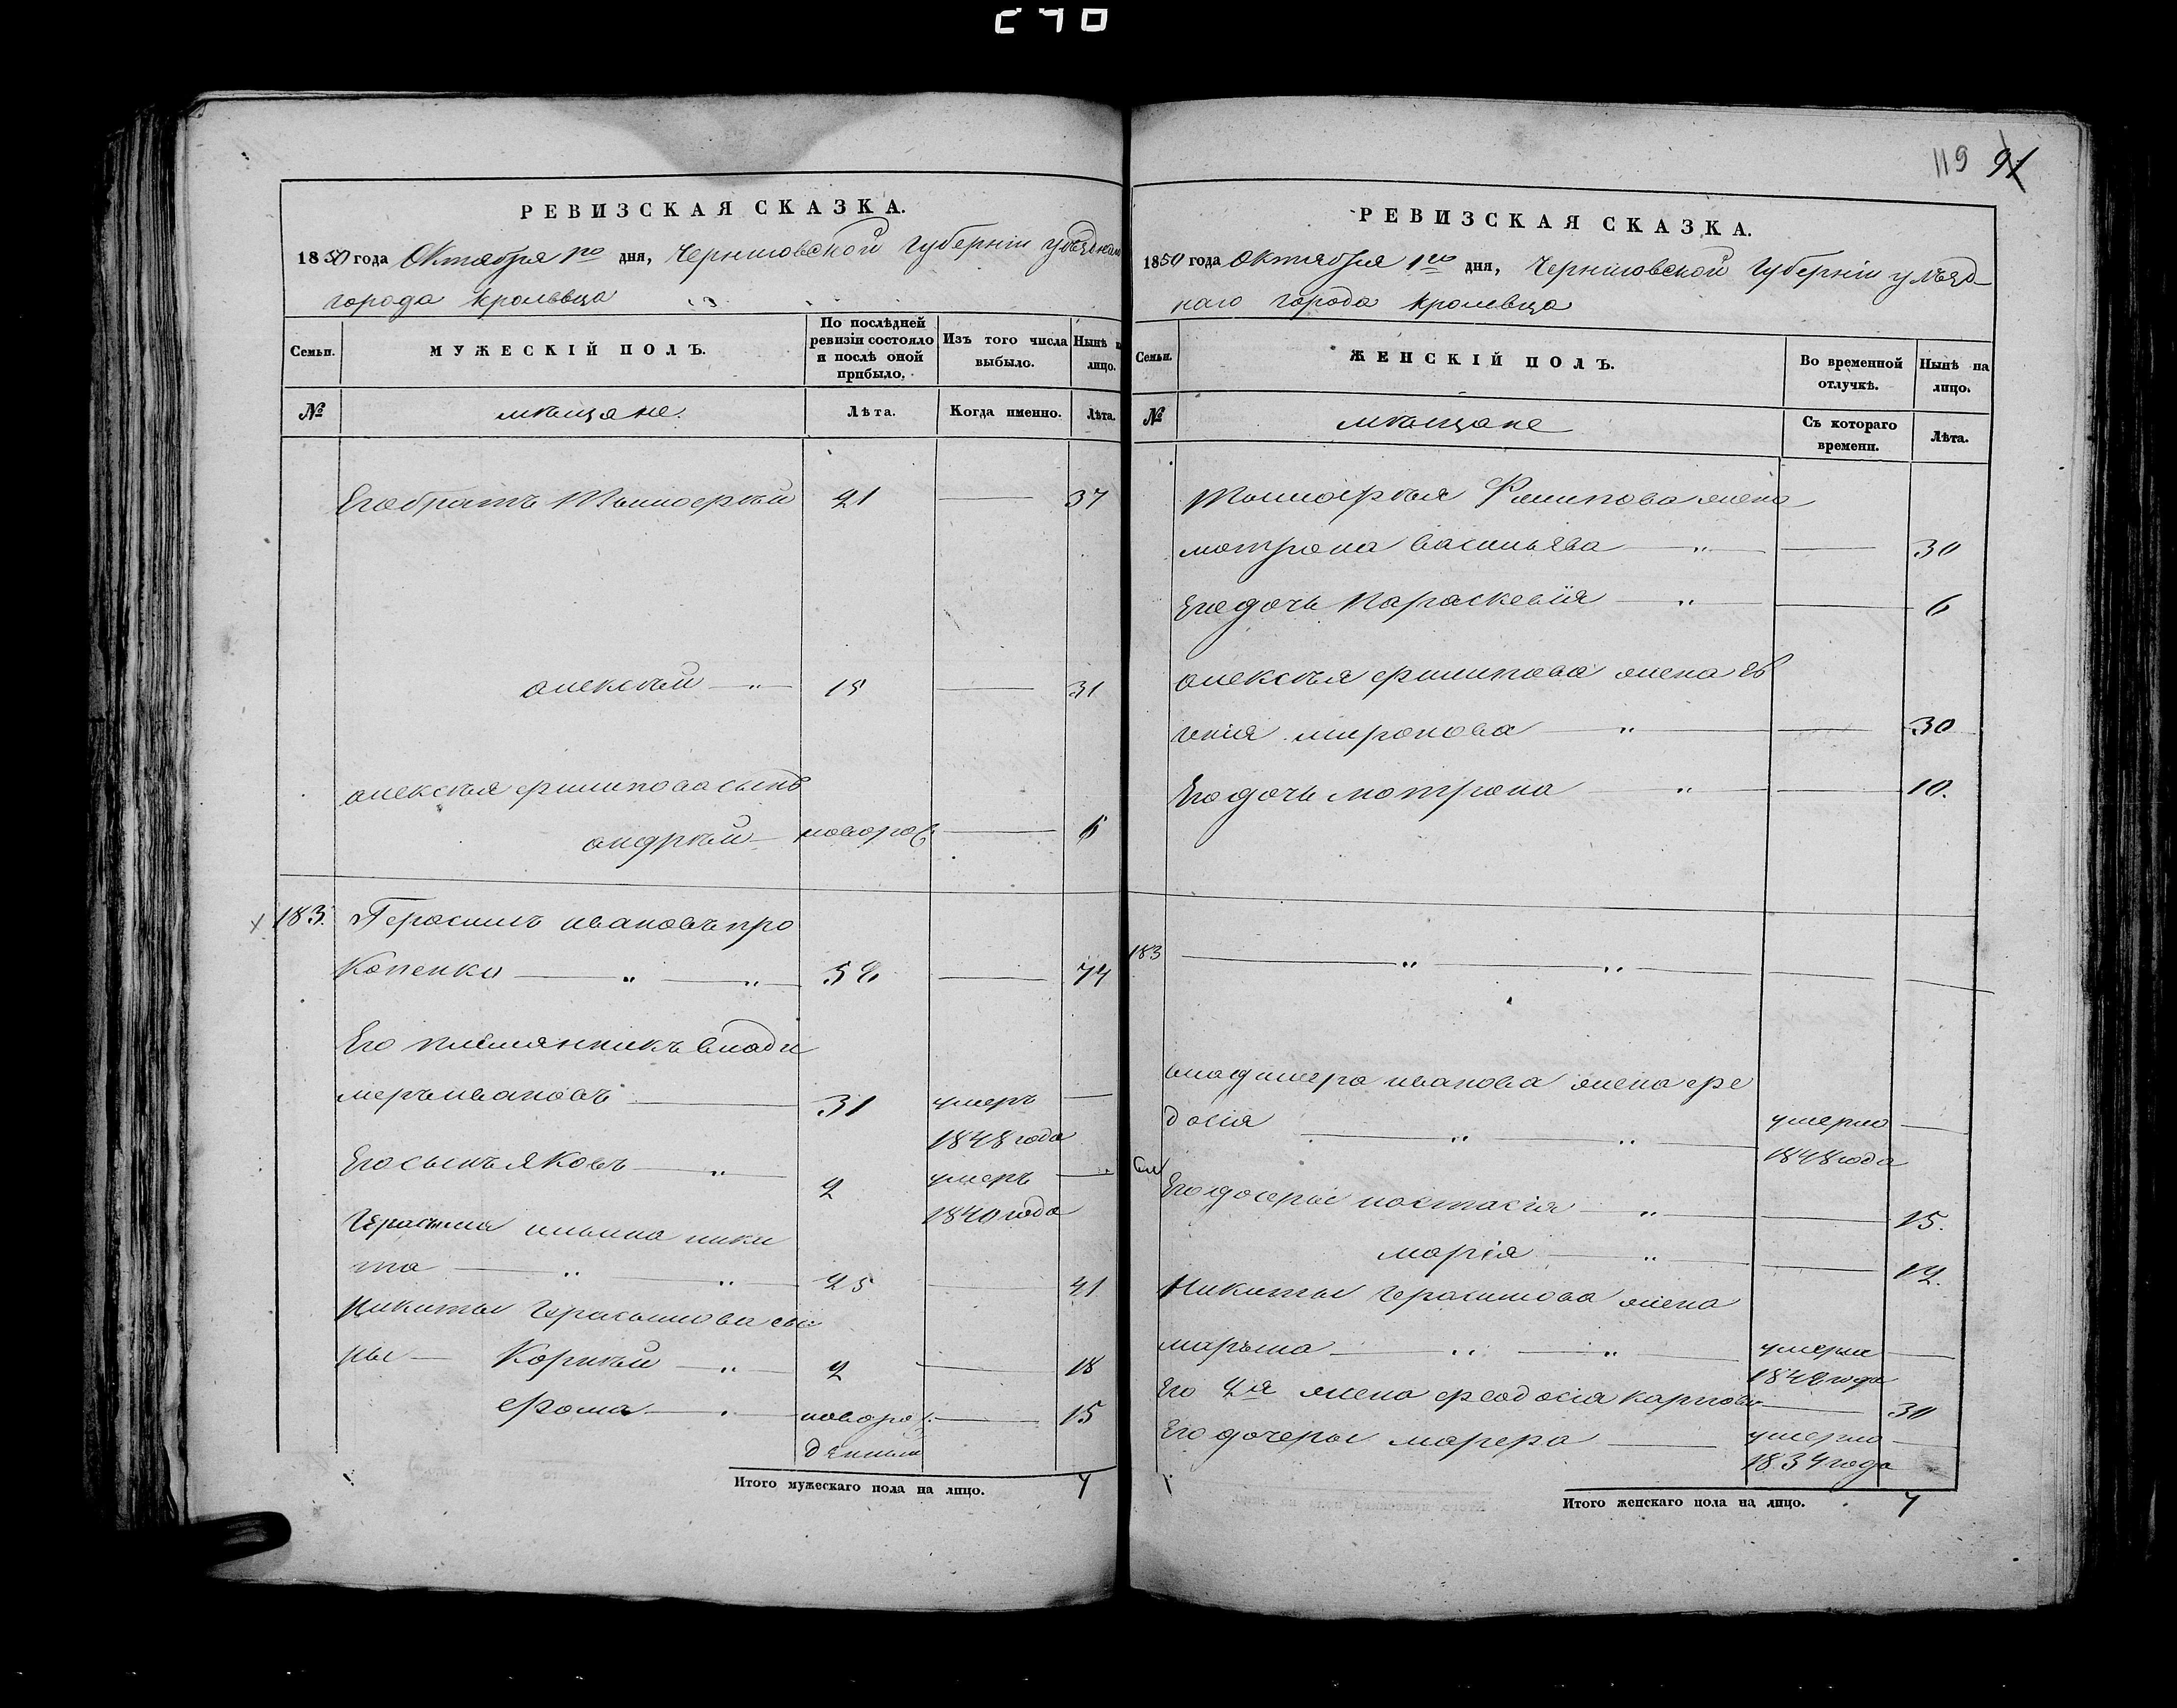 240
РЕВИЗСКАЯ СКАЗКА.
1850 года Октября 1го дня, Черниговской Губерніи уѣзднаго
города Кролевца
Семьи.
МУЖЕСКІЙ ПОЛЪ.
По послѣдней ревизіи состояло и послѣ оной прибыло.
Изъ того числа выбыло.
Нынѣ на лицо.
№
мѣщане.
Лѣта.
Когда именно.
Лѣта.
Его братъ Тимофѣй 21 — 37
Алексѣй — " 15 — 31
Алексѣя Филипова сынъ
Андрѣй — новорож. — 6
183. Герасимъ Ивановъ Про
копенко — " — " 58 — 74
Его племянникъ Влади
меръ Ивановъ — 31 умеръ —
1848 года
Его сынъ Яковъ — " 2 умеръ —
1840 года
Герасима ники
та — " — " 25 — 41
Никиты Герасимова сы
ны — Корнѣй — " 2 — 18
Фома — " новорож — 15
денный
Итого мужескаго пола на лицо. 7
119 91
РЕВИЗСКАЯ СКАЗКА.
1850 года Октября 1го дня, Черниговской Губерніи уѣзд
наго города Кролевца
Семьи.
ЖЕНСКІЙ ПОЛЪ.
Во временной отлучкѣ.
Нынѣ на лицо.
№
мѣщане
Съ котораго времени.
Лѣта.
Тимофѣя Филипова жена
Мотрона Васильева — " — 30
Его дочь Параскевія — " — 6
Алексѣя Филипова жена Ев
генія Миронова — " — 30
Его дочь Мотрона — " — 10.
183 — " — " —
Владимера Иванова жена Фе
досія — " — " умерла —
1848 года
Его дочери Настасія — " — 15.
Марія — " — 12.
Никиты Герасимова жена
— " — " — умерла —
года
Его 2я жена Феодосія Карпова — 30
Его дочеры Марфа — умерла —
1834 года
Итого женскаго пола на лицо. 7